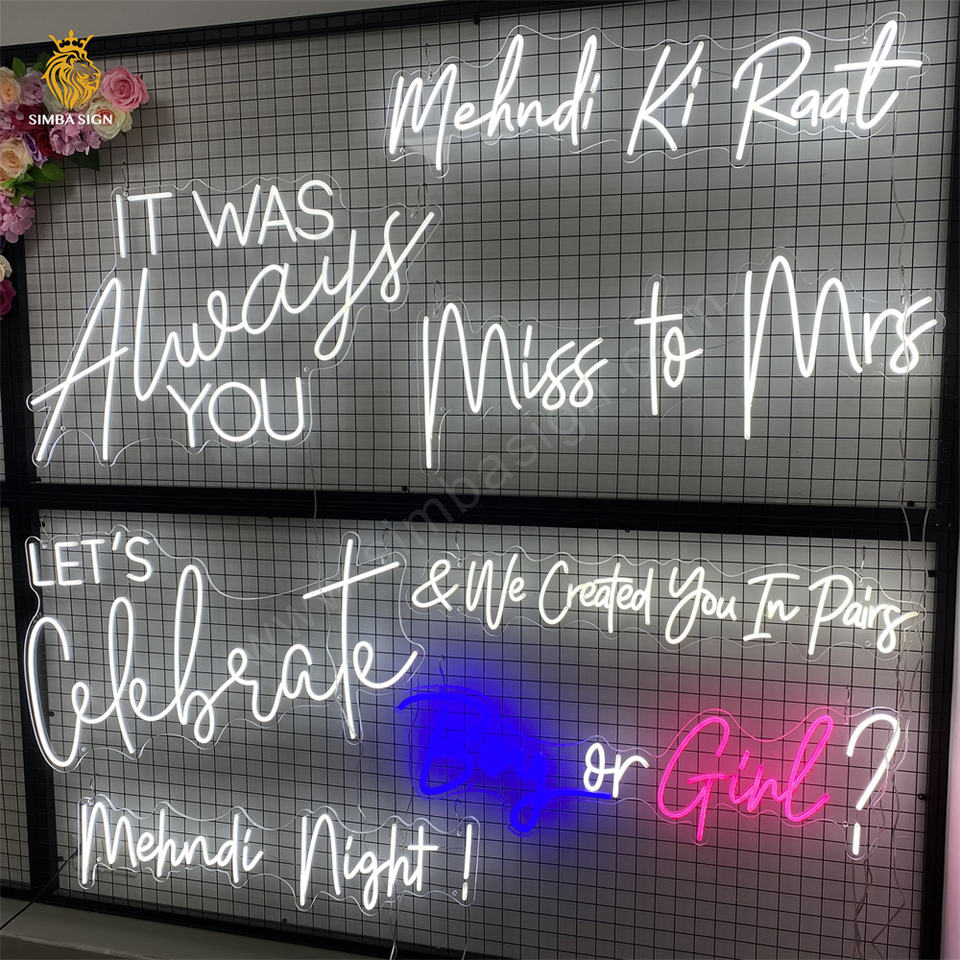 SIMBA SIGN
Mehndi Ki Raat
IT WAS
Always
YOU
Miss to Mrs
www.simbasign.com
LET'S
Celebrate
& We Created You In Pairs
Boy or Girl?
Mehndi Night!